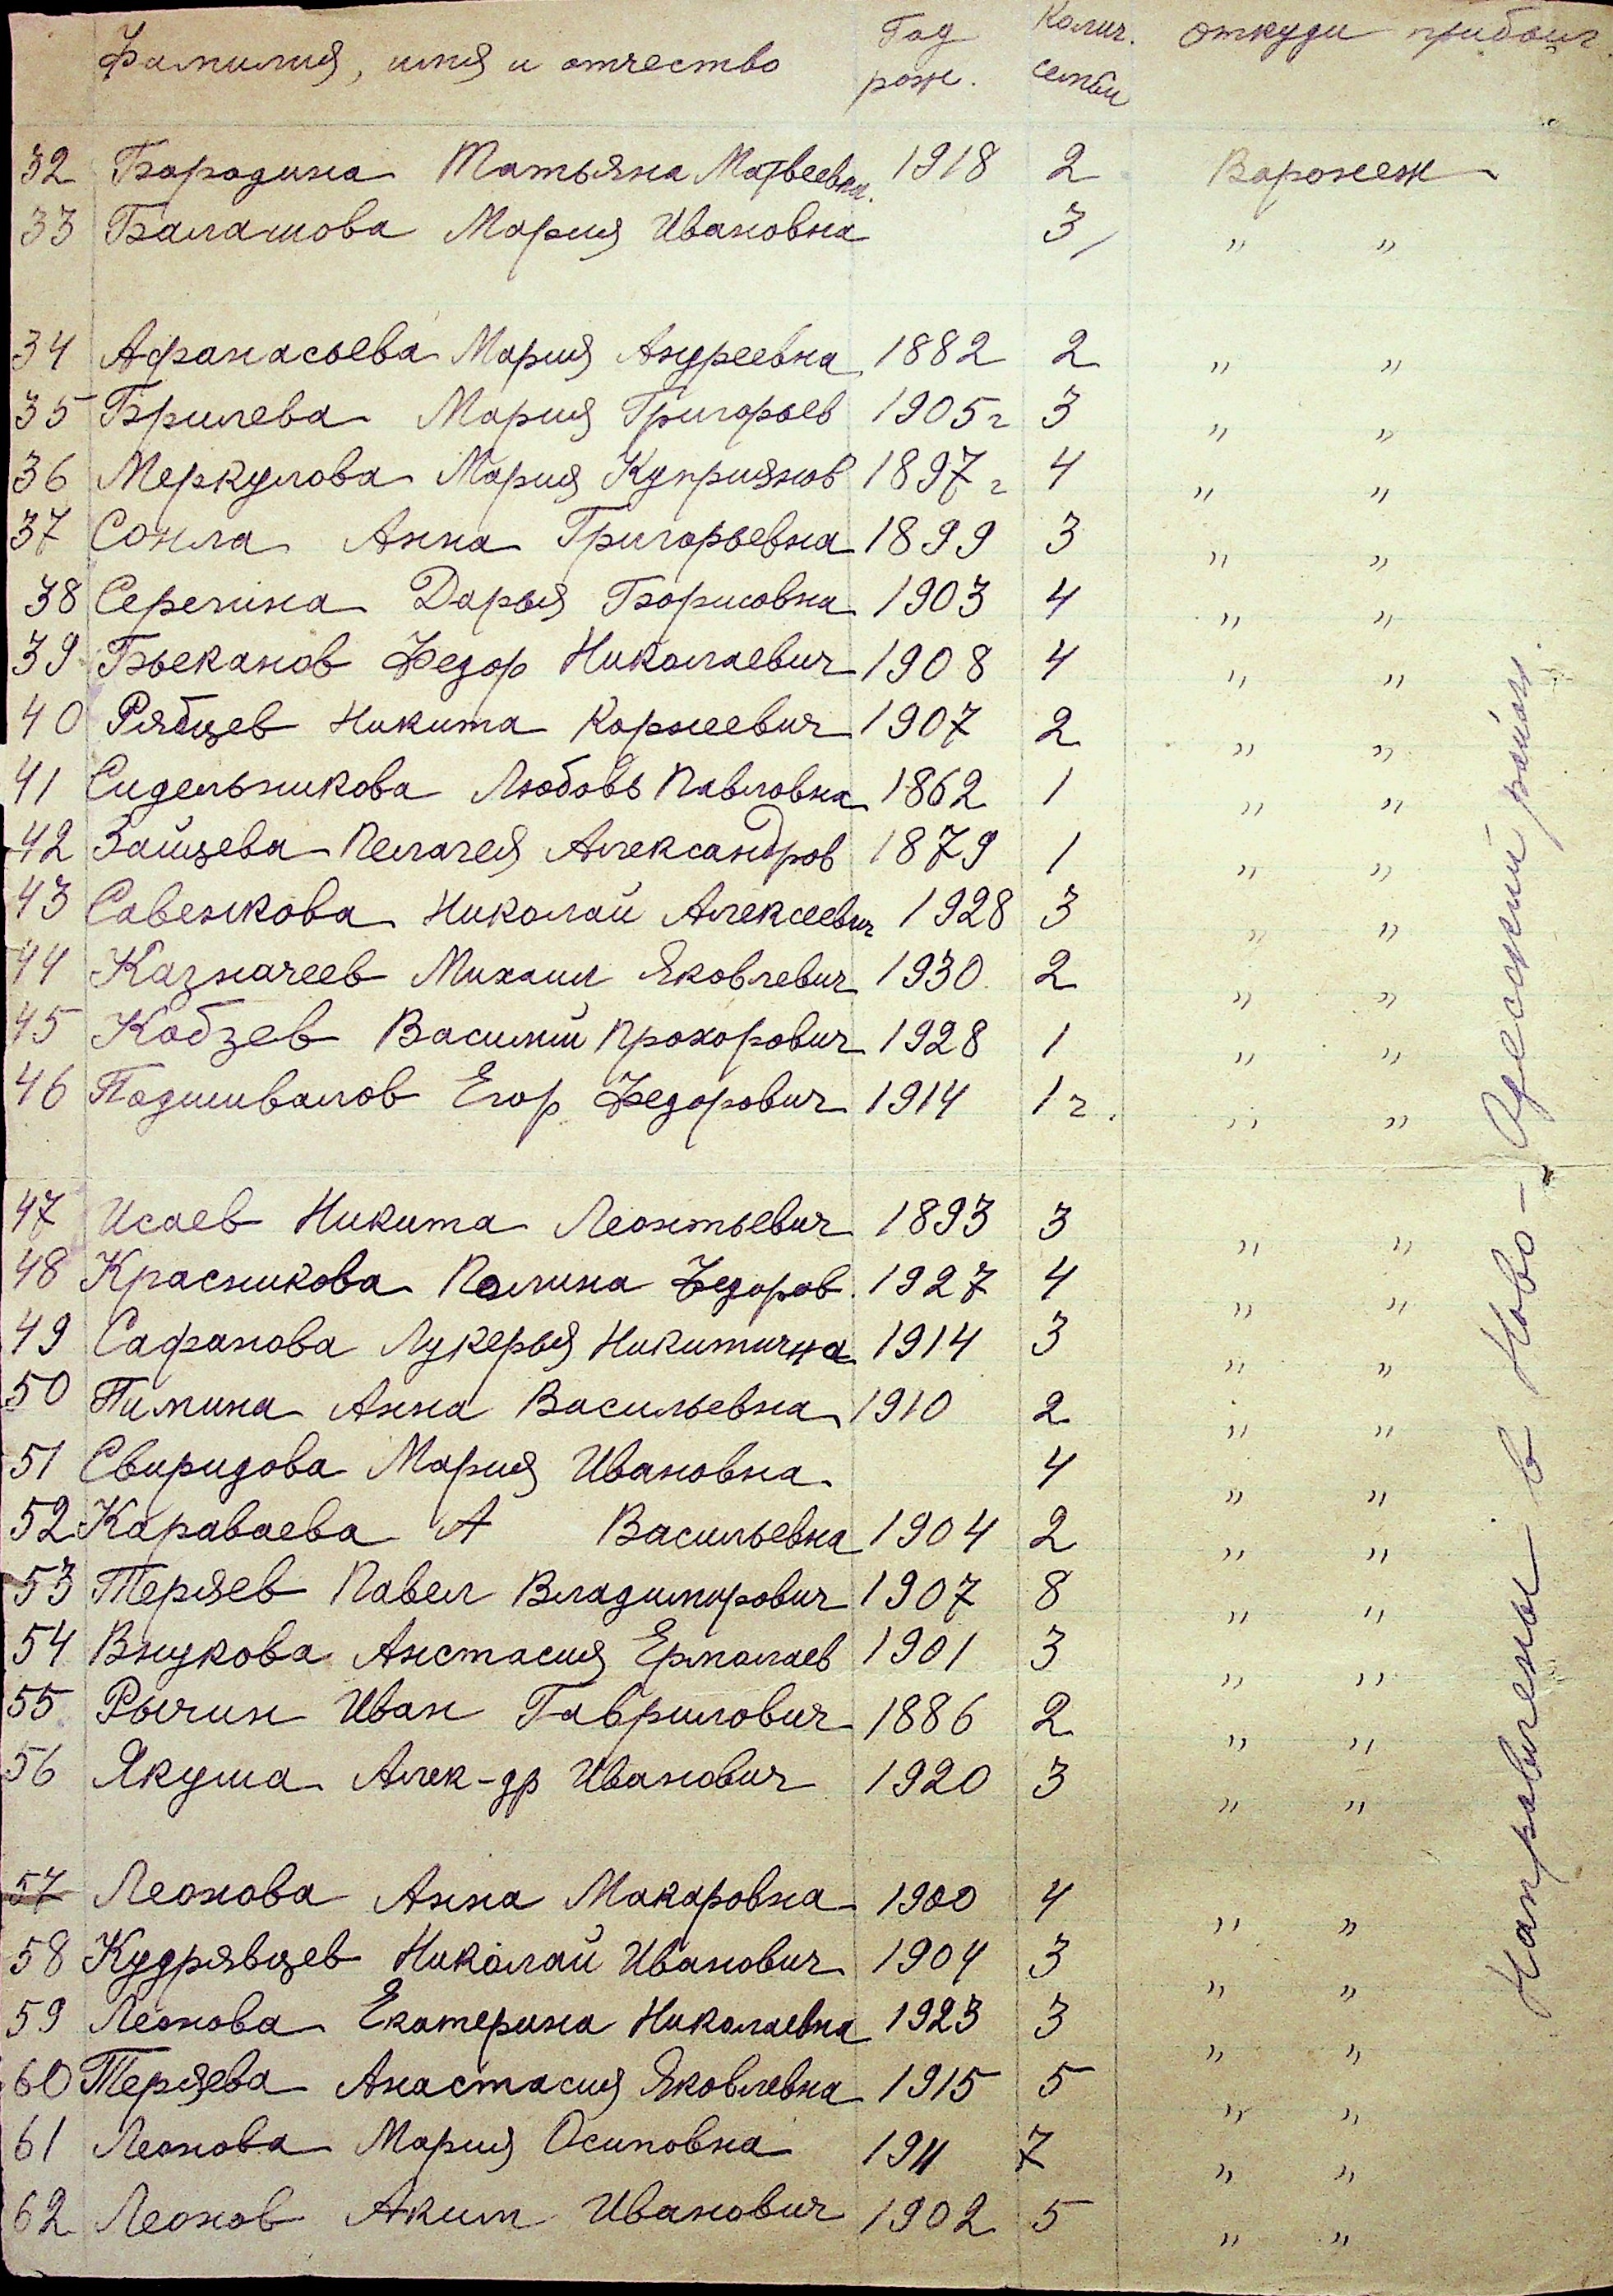 Фамилия, имя и отчество Год рож. Колич. семьи откуди прибыл
32 Бородина Татьяна Матвеевна. 1918 2 Воронеж
33 Балашова Мария Ивановна 3 " "
34 Афанасьева Мария Андреевна 1882 2 " "
35 Брилева Мария Григорьев 1905 г 3 " "
36 Меркулова Мария Куприянов 1897 г 4 " "
37 Сонла Анна Григорьевна 1899 3 " "
38 Серегина Дарья Борисовна 1903 4 " "
39 Бьеканов Федор Николаевич 1908 4 " "
40 Рябцев Никита Корнеевич 1907 2 " "
41 Сидельникова Любовь Павловна 1862 1 " "
42 Зайцева Пелагея Александров 1879 1 " "
43 Савенкова Николай Алексеевич 1928 3 " "
44 Казначеев Михаил Яковлевич 1930 2 " "
45 Кобзев Василий Прохорович 1928 1 " "
46 Подшивалов Егор Федорович 1914 1 г. " "
47 Исаев Никита Леонтьевич 1893 3 " "
48 Красникова Полина Федоров. 1927 4 " "
49 Сафонова Лукерья Никитична 1914 3 " "
50 Пимина Анна Васильевна 1910 2 " "
51 Свиридова Мария Ивановна 4 " "
52 Караваева А Васильевна 1904 2 " "
53 Теряев Павел Владимирович 1907 8 " "
54 Внукова Анстасия Ермолаев 1901 3 " "
55 Рычин Иван Гаврилович 1886 2 " "
56 Якуша Алек-др Иванович 1920 3 " "
57 Леонова Анна Макаровна 1900 4 " "
58 Кудрявцев Николай Иванович 1904 3 " "
59 Леонова Екатерина Николаевна 1923 3 " "
60 Теряева Анастасия Яковлевна 1915 5 " "
61 Леонова Мария Осиповна 1911 7 " "
62 Леонов Аким Иванович 1902 5 " "
Направлены в Ново- район.